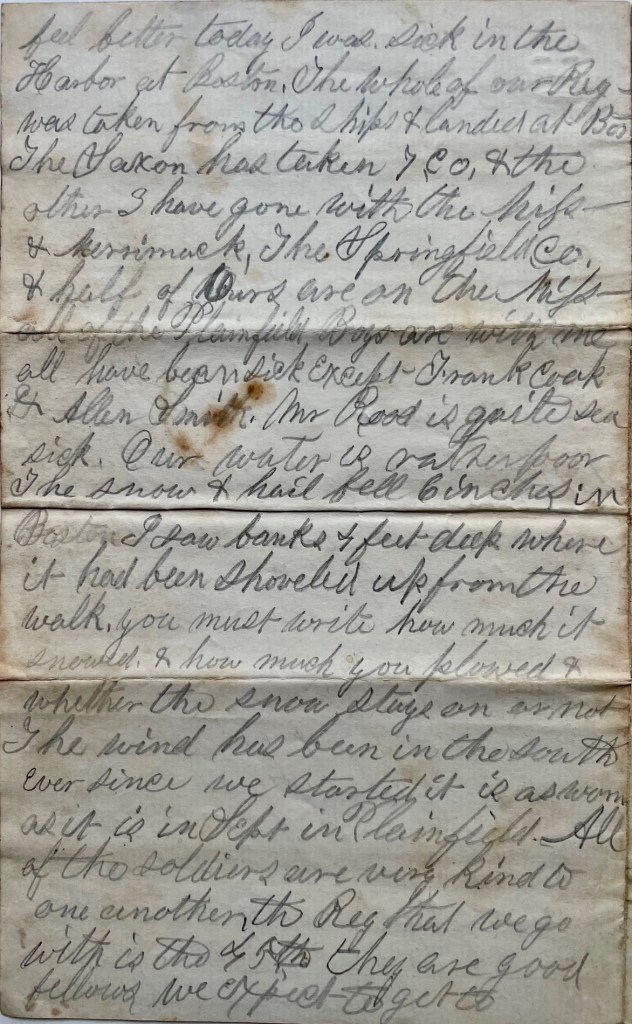 feel better today I was. sick in the
Harbor at Boston. The whole of our Reg-
was taken from the ships & landed at Bos
The Saxon has taken 7 Co, & the
other 3 have gone with the Miss-
& Merrimack, The Springfield Co.
& half of Ours are on the Miss-
all of the Plainfield Boys are with me
all have bean sick Except Frank Cook
& Allen Smith. Mr Rood is quite sea
sick. Our water is rather poor
The snow & hail fell 6 inches in
Boston I saw banks 4 feet deep where
it had been shoveled up from the
walk, you must write how much it
snowed. & how much you plowed &
whether the snow stays on or not
The wind has been in the south
Ever since we started it is as warm
as it is in Sept in Plainfield. All
of the soldiers are very kind to
one another, th Reg that we go
with is the 45th they are good
fellows we expect to get to